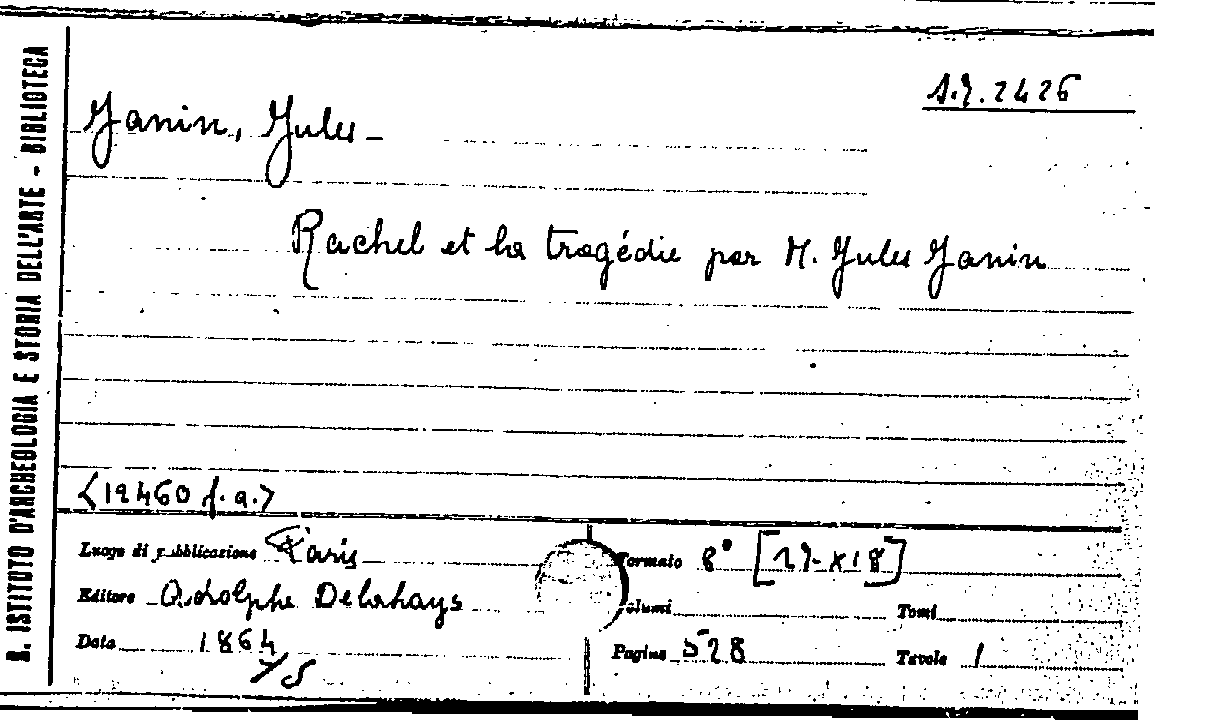 R. ISTITUTO D'ARCHEOLOGIA E STORIA DELL'ARTE - BIBLIOTECA
Janin, Jules -
Rachel et la tragédie par M. Jules Janin
<12460 f. a.>
Luogo di pubblicazione Paris
Editore Adolphe Delahays
Data 1864
Formato 8° [27 × 18]
Volumi
Tomi
Pagine 528
Tavole 1